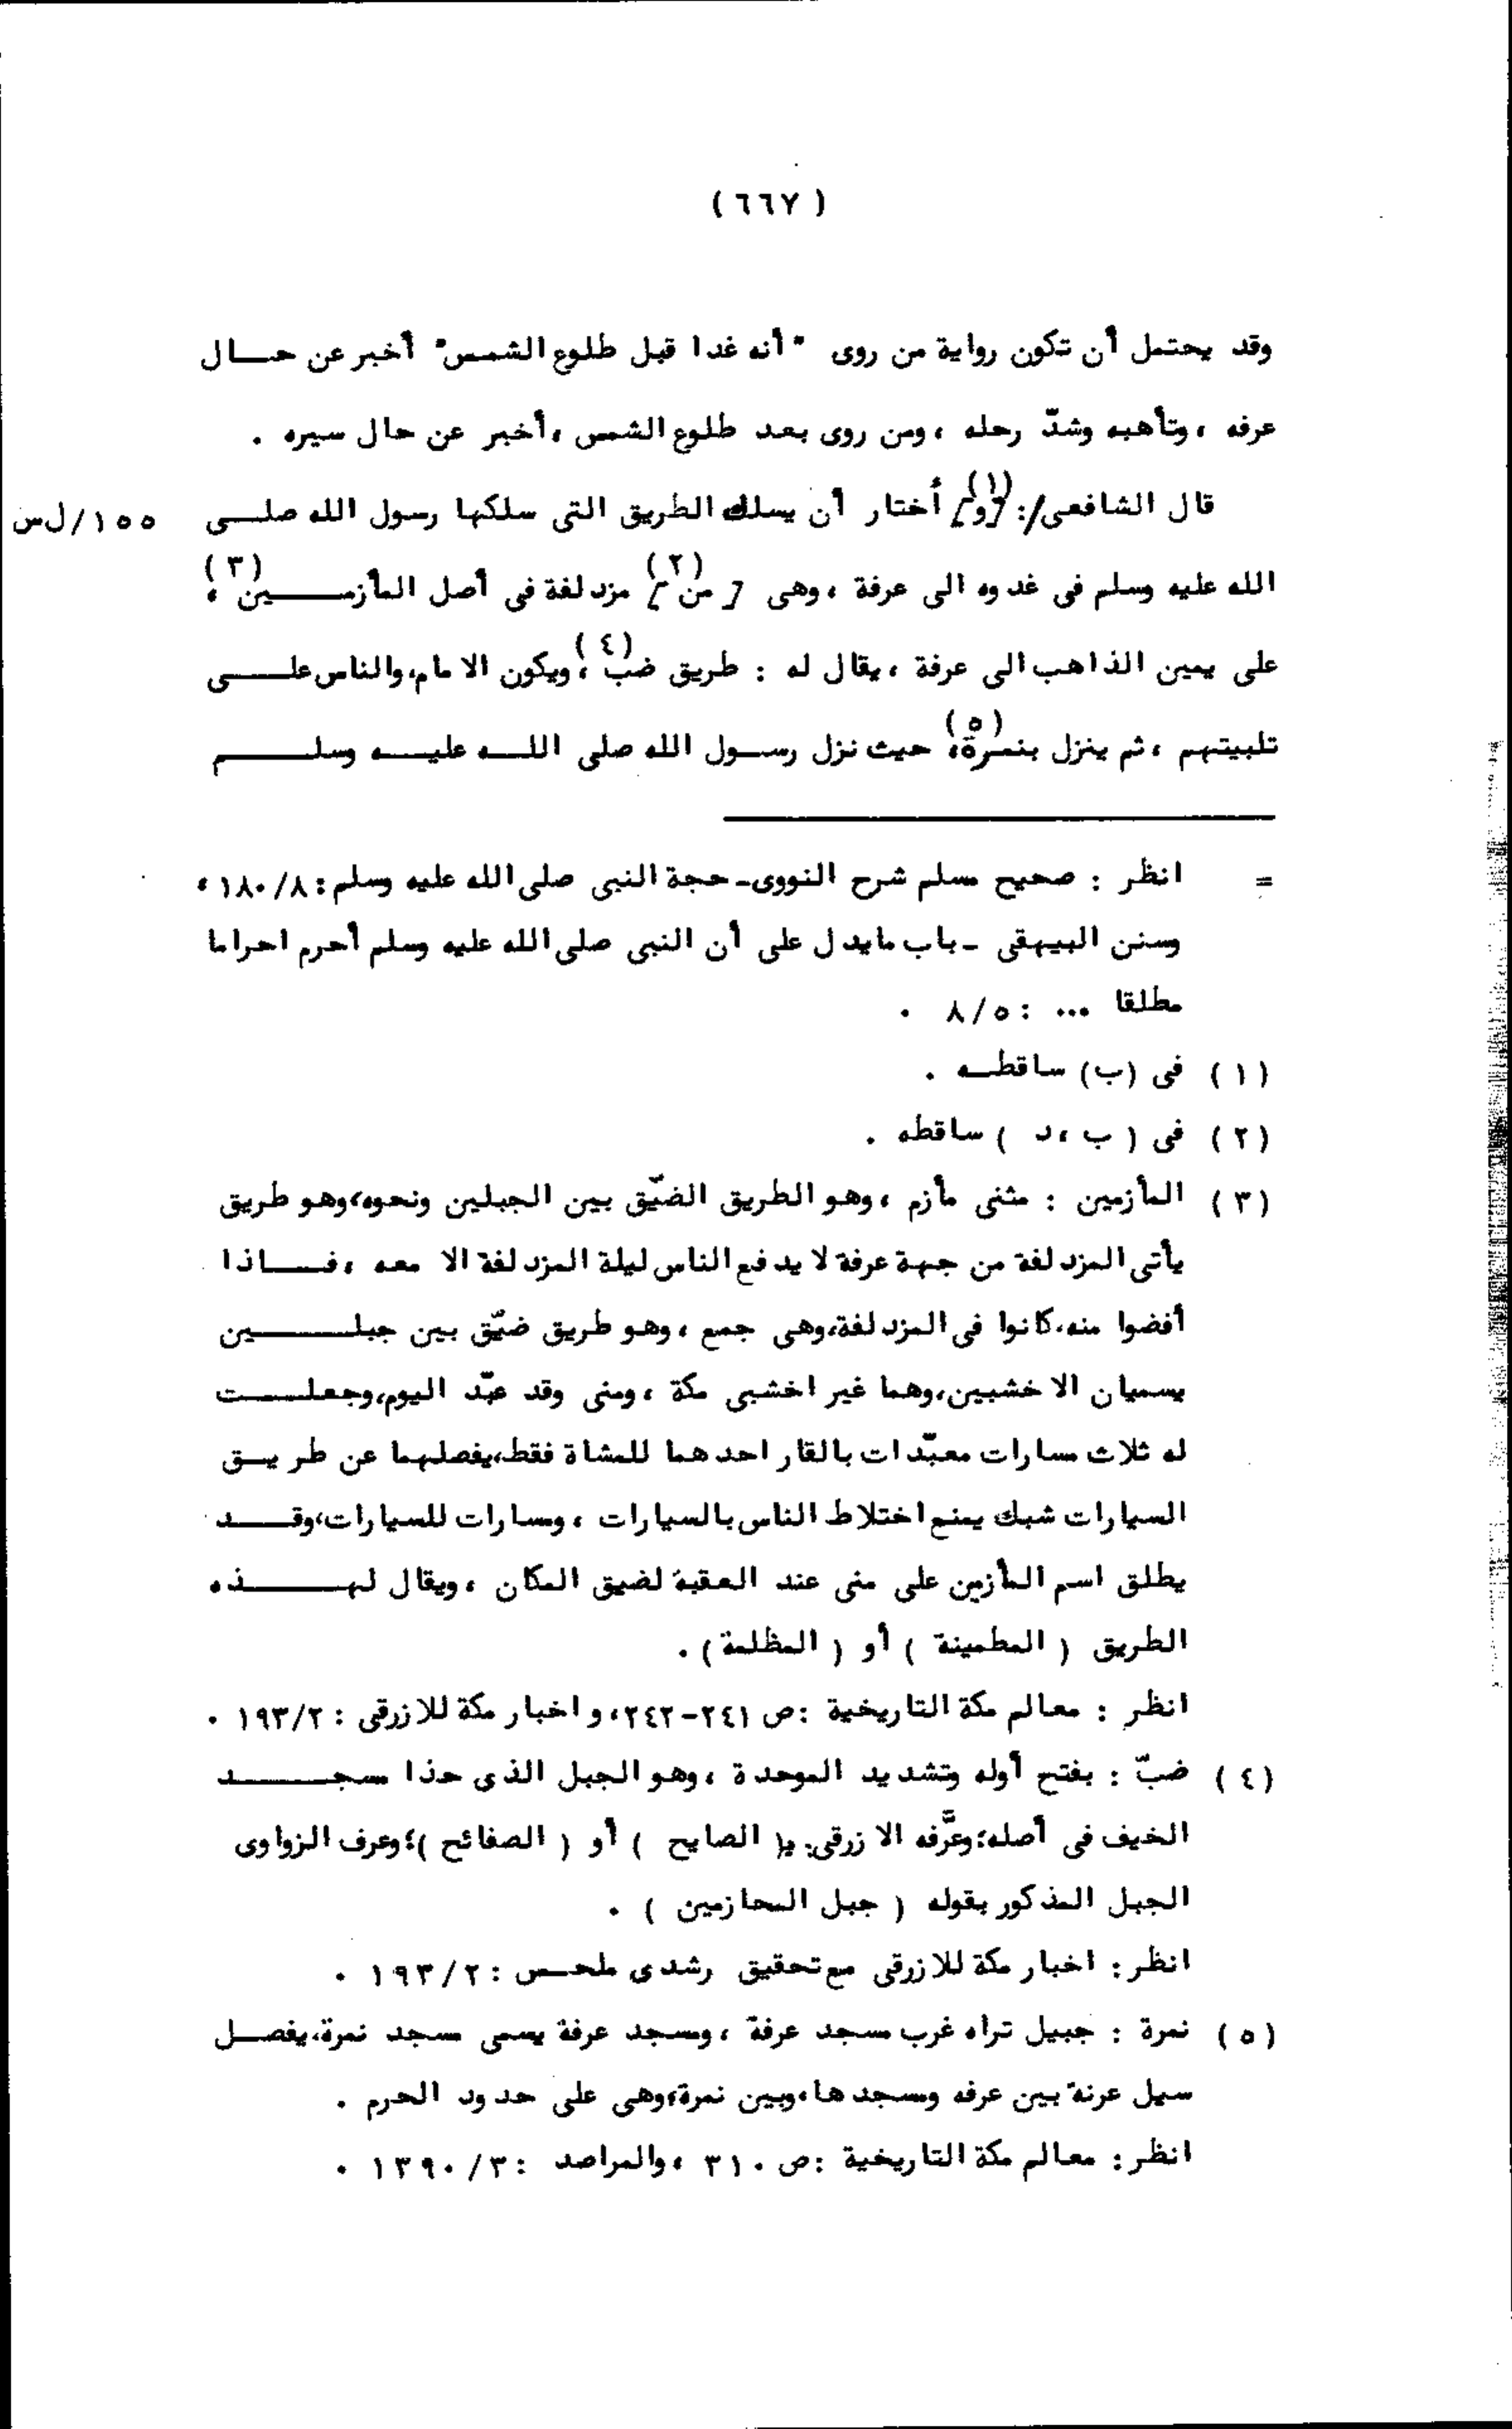 ( ٦٦٧ )
وقد يحتمل أن تكون رواية من روى " أنه غدا قبل طلوع الشمس" أخبر عن حــال
عرفه ، وتأهبه وشدّ رحله ، ومن روى بعد طلوع الشمس ، أخبر عن حال سيره .
قال الشافعى/: [و](١) أختار أن يسلك الطريق التى سلكها رسول الله صلــى ١٥٥/ل س
الله عليه وسلم فى غدوه الى عرفة ، وهى [ من ](٢) مزدلفة فى أصل المأزمــين(٣) ،
على يمين الذاهب الى عرفة ، يقال له : طريق ضب(٤) ، ويكون الامام، والناس علــى
تلبيتهم ، ثم ينزل بنمرة(٥)، حيث نزل رسـول الله صلى اللـه عليـه وسلـم
= انظر : صحيح مسلم شرح النووى ـ حجة النبى صلى الله عليه وسلم : ١٨٠/٨ ،
وسنن البيهقى ـ باب مايدل على أن النبى صلى الله عليه وسلم أحرم احراما
مطلقا ... : ٨/٥ .
(١) فى (ب) ساقطـه .
(٢) فى ( ب ، د ) ساقطه .
(٣) المأزمين : مثنى مأزم ، وهو الطريق الضيّق بين الجبلين ونحوه، وهو طريق
يأتى المزدلفة من جهة عرفة لا يدفع الناس ليلة المزدلفة الا معه ، فــاذا
أفضوا منه، كانوا فى المزدلفة، وهى جمع ، وهو طريق ضيّق بين جبلــين
يسميان الاخشبين، وهما غير اخشبى مكة ، ومنى وقد عبّد اليوم، وجعلــت
له ثلاث مسارات معبّدات بالقار احدهما للمشاة فقط، يفصلهما عن طريــق
السيارات شبك يمنع اختلاط الناس بالسيارات ، ومسارات للسيارات، وقــد
يطلق اسم المأزمين على منى عند العقبة لضيق المكان ، ويقال لهــذه
الطريق ( المطمينة ) أو ( المظلمة ) .
انظر : معالم مكة التاريخية : ص ٢٤١-٢٤٢، و اخبار مكة للازرقى : ١٩٣/٢ .
(٤) ضبّ : بفتح أوله وتشديد الموحدة ، وهو الجبل الذى حذا مسجــد
الخيف فى أصله؛ وعرَّفه الازرقى: بـ( الصايح ) أو ( الصفائح )؛ وعرف الزواوى
الجبل المذكور بقوله ( جبل المحازمين ) .
انظر : اخبار مكة للازرقى مع تحقيق رشدى ملحـس : ١٩٣/٢ .
(٥) نمرة : جبيل تراه غرب مسجد عرفة ، ومسجد عرفة يسمى مسجد نمرة، يفصــل
سيل عرنة بين عرفه ومسجدها، وبين نمرة، وهى على حدود الحرم .
انظر : معالم مكة التاريخية : ص ٣١٠ ، والمراصد : ١٣٩٠/٣ .